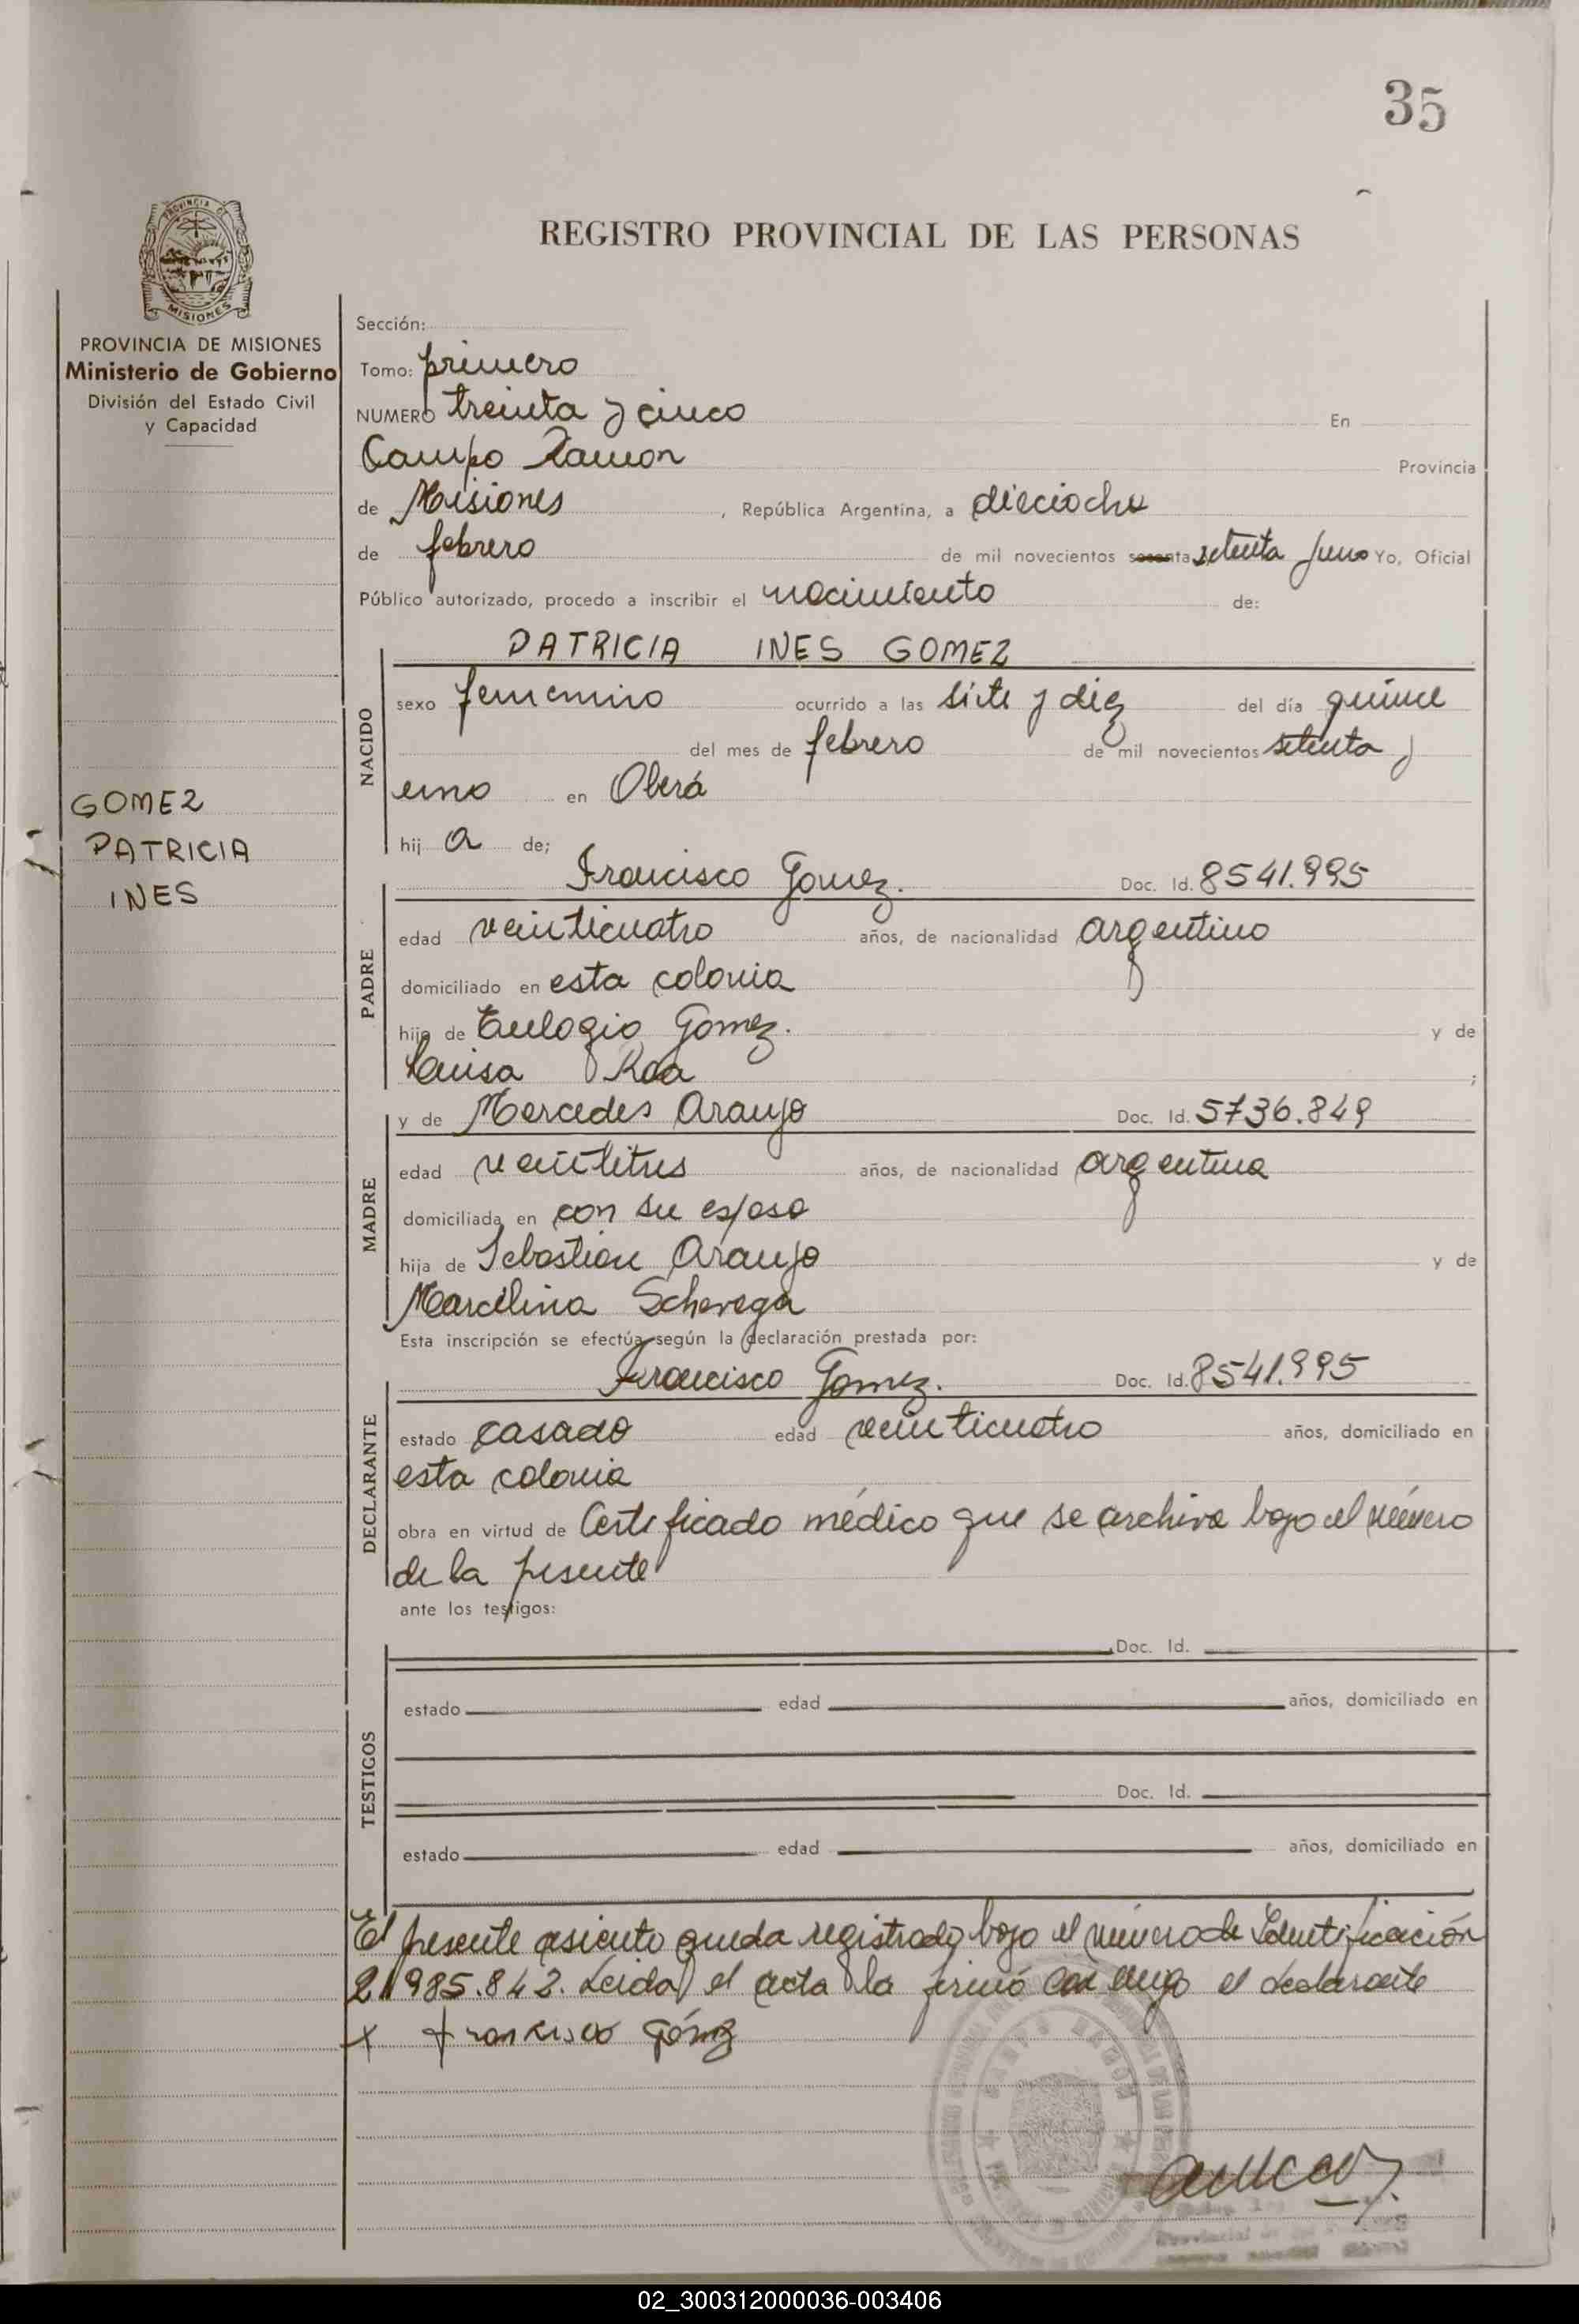 35
REGISTRO PROVINCIAL DE LAS PERSONAS
MISIONES
PROVINCIA DE MISIONES
Ministerio de Gobierno
División del Estado Civil
y Capacidad
GOMEZ
PATRICIA
INES
Sección:
Tomo: primero
NUMERO treinta y cinco En
Campo Ramon Provincia
de Misiones, República Argentina, a dieciocho
de febrero de mil novecientos sesenta setenta y uno Yo, Oficial
Público autorizado, procedo a inscribir el nacimiento de:
NACIDO
PATRICIA INES GOMEZ
sexo femenino ocurrido a las siete y diez del día quince
del mes de febrero de mil novecientos setenta y
uno en Oberá
hij a de;
PADRE
Francisco Gomez. Doc. Id. 8541.995
edad veinticuatro años, de nacionalidad argentino
domiciliado en esta colonia
hijo de Eulogio Gomez. y de
Luisa Roa ;
MADRE
y de Mercedes Araujo Doc. Id. 5736.849
edad veintitres años, de nacionalidad argentina
domiciliada en con su esposo
hija de Sebastian Araujo y de
Marcelina
Esta inscripción se efectúa según la declaración prestada por:
DECLARANTE
Francisco Gomez. Doc. Id. 8541.995
estado casado edad veinticuatro años, domiciliado en
esta colonia
obra en virtud de Certificado médico que se archiva bajo el número
de la presente
ante los testigos:
TESTIGOS
Doc. Id.
estado edad años, domiciliado en
Doc. Id.
estado edad años, domiciliado en
El presente asiento queda registrado bajo el número de Identificación
21985.842. Leida el acta la firmó conmigo el declarante
x Francisco Gómez
CAMPO RAMON
02_300312000036-003406